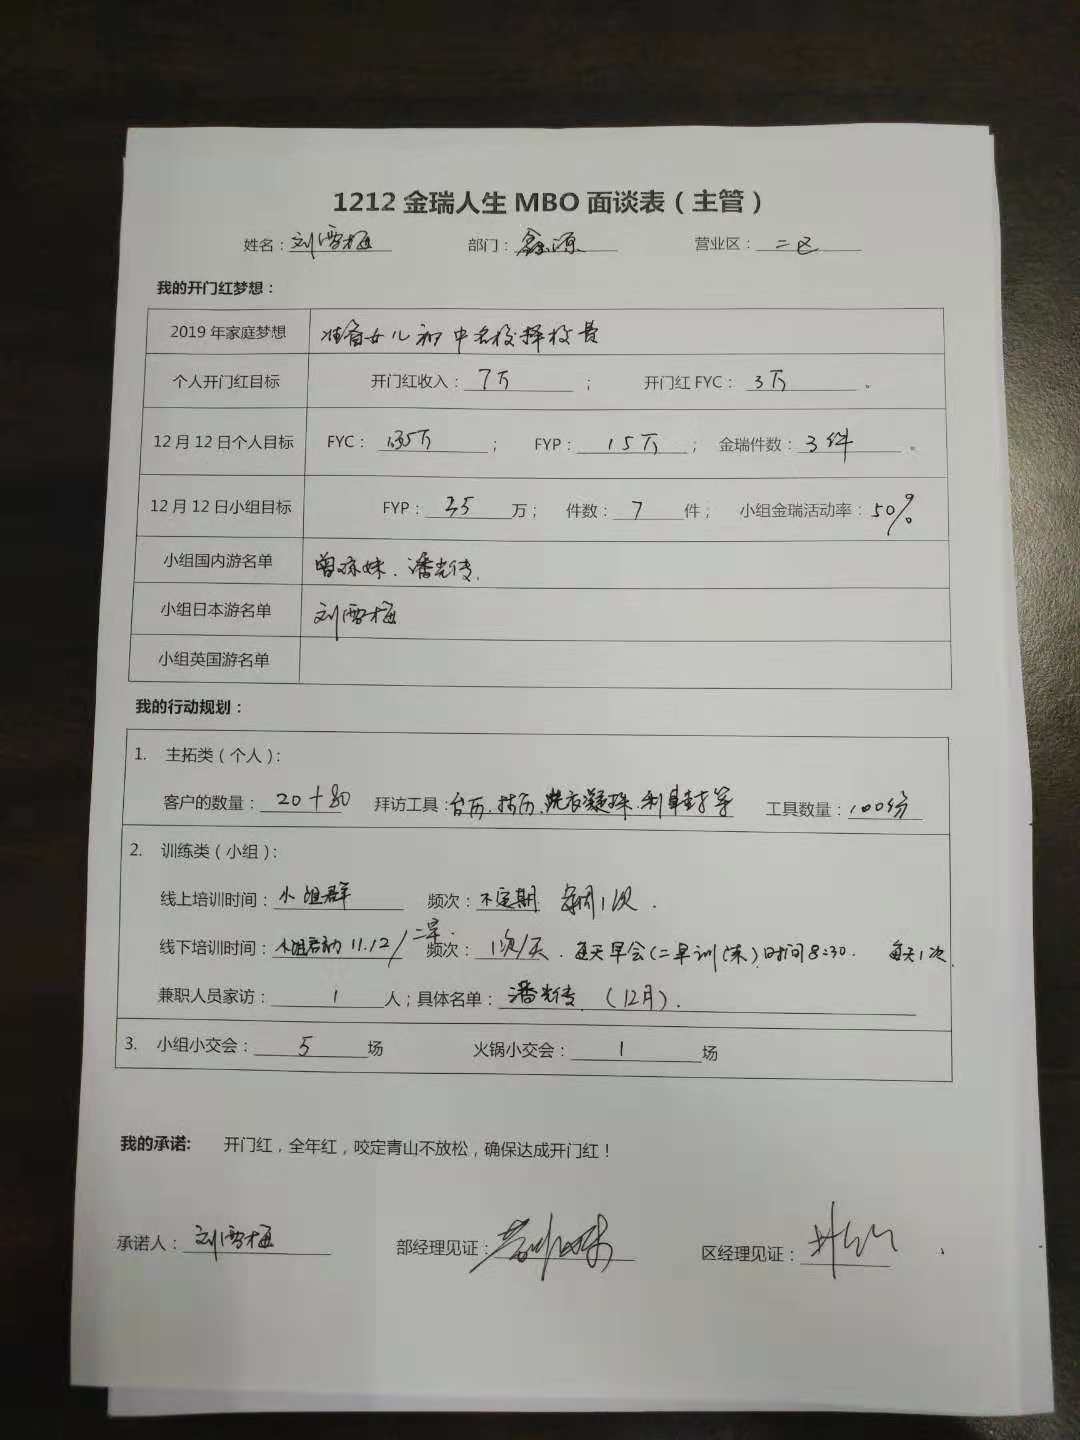 1212金瑞人生MBO面谈表（主管）
姓名：刘雪梅 部门：鑫源 营业区：二区
我的开门红梦想：
2019年家庭梦想 准备女儿初中名校择校费
个人开门红目标 开门红收入：7万； 开门红FYC：3万。
12月12日个人目标 FYC：1.35万； FYP：15万； 金瑞件数：3件。
12月12日小组目标 FYP：35万； 件数：7件； 小组金瑞活动率：50%
小组国内游名单 曾琼妹、潘光传
小组日本游名单 刘雪梅
小组英国游名单
我的行动规划：
1. 主拓类（个人）：
客户的数量：20+80 拜访工具：台历、挂历、洗衣凝珠、利是封等 工具数量：100份
2. 训练类（小组）：
线上培训时间：小组群 频次：不定期 每周1次.
线下培训时间：小组启动 11.12/二早. 频次：1次/天. 每天早会(二早训练)时间8:30. 每天1次
兼职人员家访：1人；具体名单：潘光传 （12月）.
3. 小组小交会：5场 火锅小交会：1场
我的承诺: 开门红，全年红，咬定青山不放松，确保达成开门红！
承诺人：刘雪梅 部经理见证： 区经理见证：